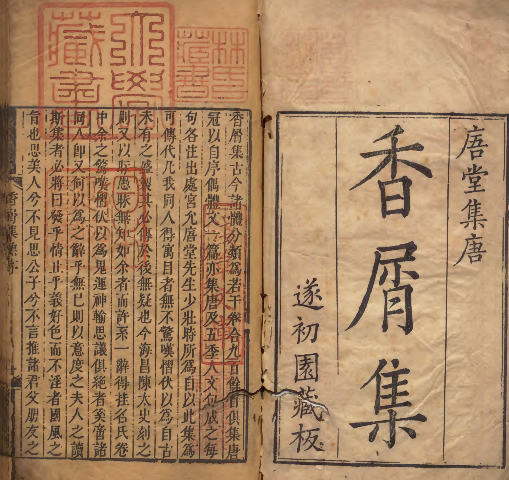 唐堂集唐
香屑集
遂初園藏板
林氏藏書
香屑集古今諸體分類爲若干卷合九百餘首俱集唐
冠以自序偶體文一篇亦集唐及五季人文句成之每
句各注出處宮允唐堂先生少壯時所爲自以此集爲
可傳代凡我同人得寓目者無不驚嘆慴伏以爲自古
未有之盛製其必傳於後無疑也今海昌陳太史刻之
則又以貽愚聯無知如余者而許系一辭得挂名氏卷
中余之驚嘆慴伏以爲鬼運神輸思議俱絕者奚啻諸
同人卽又何以爲之辭乎無已則以意度之夫人之讀
斯集者必將曰發乎情止乎義好色而不淫者國風之
旨也思美人兮不見思公子兮不言推諸君父朋友之
香屑集
藏書